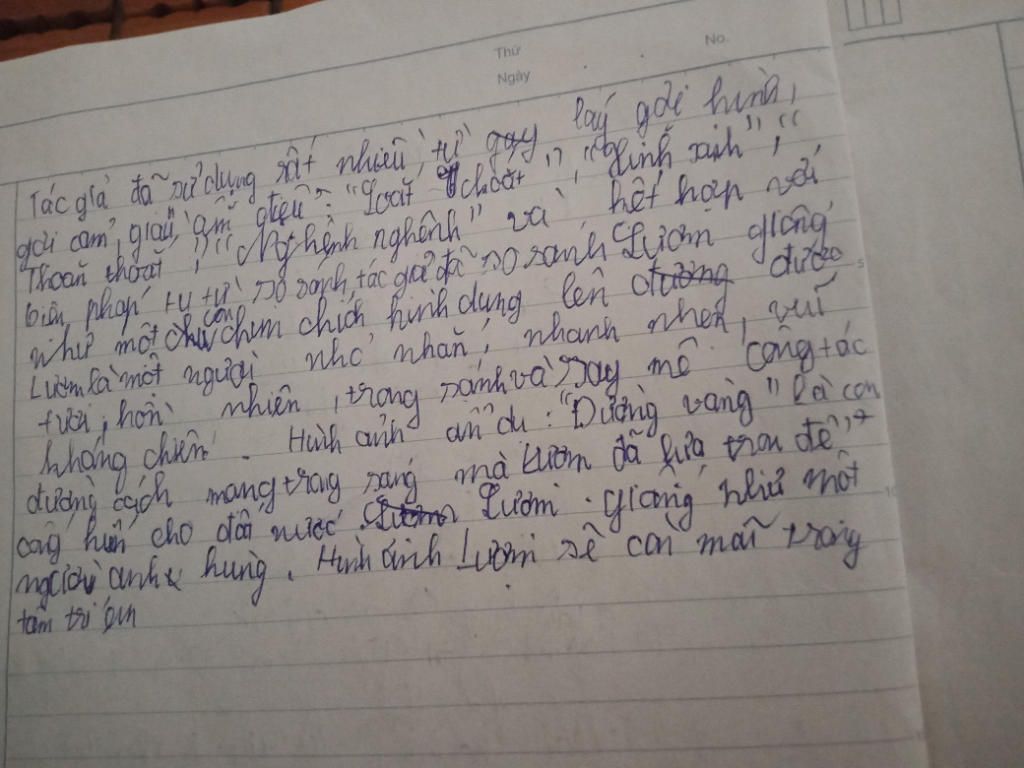 Thứ
No.
Ngày
Tác giả đã sử dụng rất nhiều từ láy gợi hình,
gợi cảm, giàu âm điệu: "Loắt choắt", "xinh xinh", "
Thoăn thoắt", "Nghênh nghênh" và kết hợp với
biện pháp tu từ so sánh, tác giả đã so sánh Lượm giống
như một con chim chích hình dung lên được
Lượm là một người nhỏ nhắn, nhanh nhẹn, vui
tươi, hồn nhiên, trong sánh và say mê công tác
kháng chiến. Hình ảnh ẩn dụ: "Đường vàng" là con
đường cách mạng trong sáng mà Lượm đã hứa
cống hiến cho đất nước. Lượm giống như một
người anh hùng. Hình ảnh Lượm sẽ còn mãi trong
tâm trí em